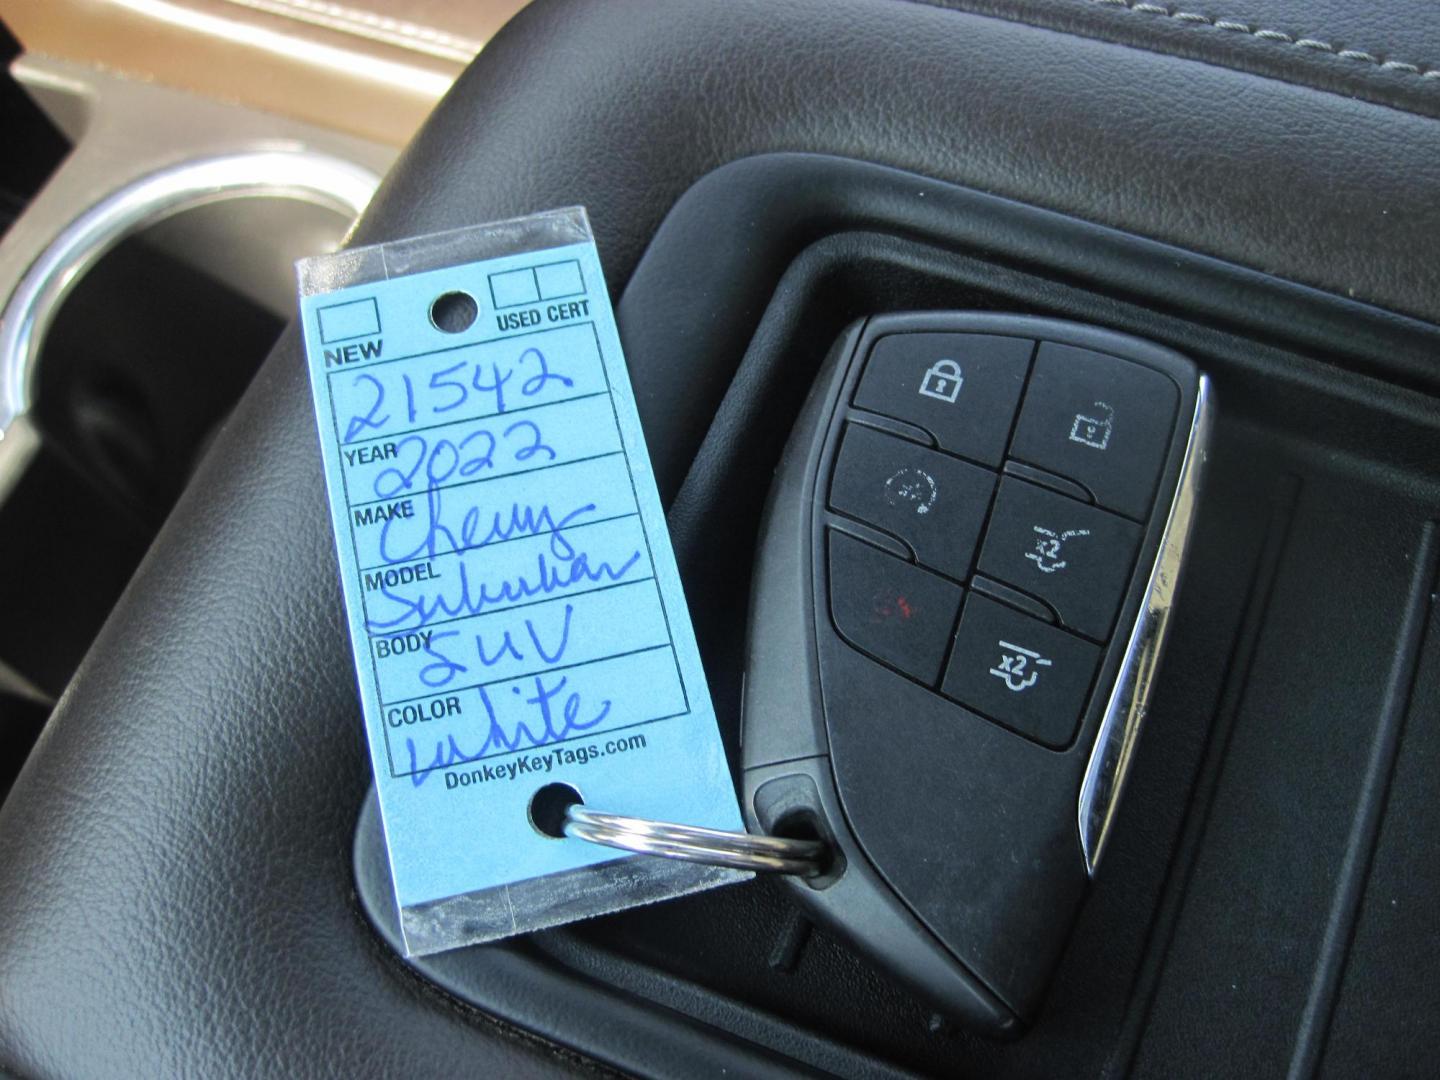 NEW
USED CERT
21542
YEAR 2022
MAKE Chevy
MODEL Suburban
BODY SUV
COLOR White
DonkeyKeyTags.com
x2
x2